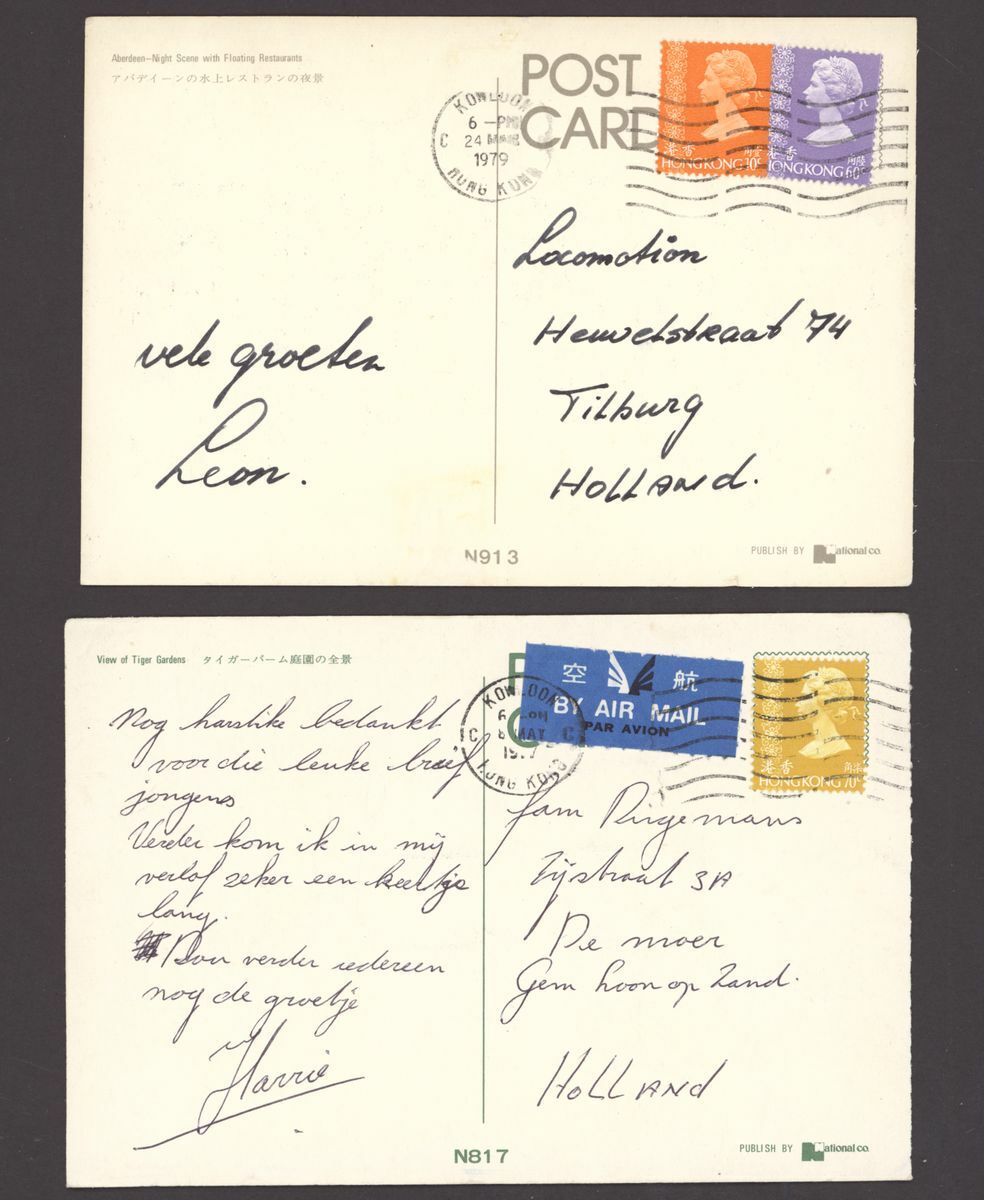 Aberdeen–Night Scene with Floating Restaurants
アバディーンの水上レストランの夜景
POST
CARD
KOWLOON
6 –PM
C 24 MAR
1979
HONG KONG
香港
HONG KONG 30c
香港
HONG KONG 60c
vele groeten
Leon.
Locomotion
Heuvelstraat 74
Tilburg
HOLLAND.
N913
PUBLISH BY National co.
View of Tiger Gardens タイガーパーム庭園の全景
空 航
BY AIR MAIL
PAR AVION
KOWLOON
6
C 8 MAY C
HONG KONG
香港
HONG KONG 70c
Nog harstike bedankt
voor die leuke brief
jongens
Verder kom ik in mij
verlof zeker een keertje
lang.
Dan verder iedereen
nog de groetje
Harrie
fam
Zijstraat 3A
De moer
Gem Loon op Zand.
HOLLAND
N817
PUBLISH BY National co.